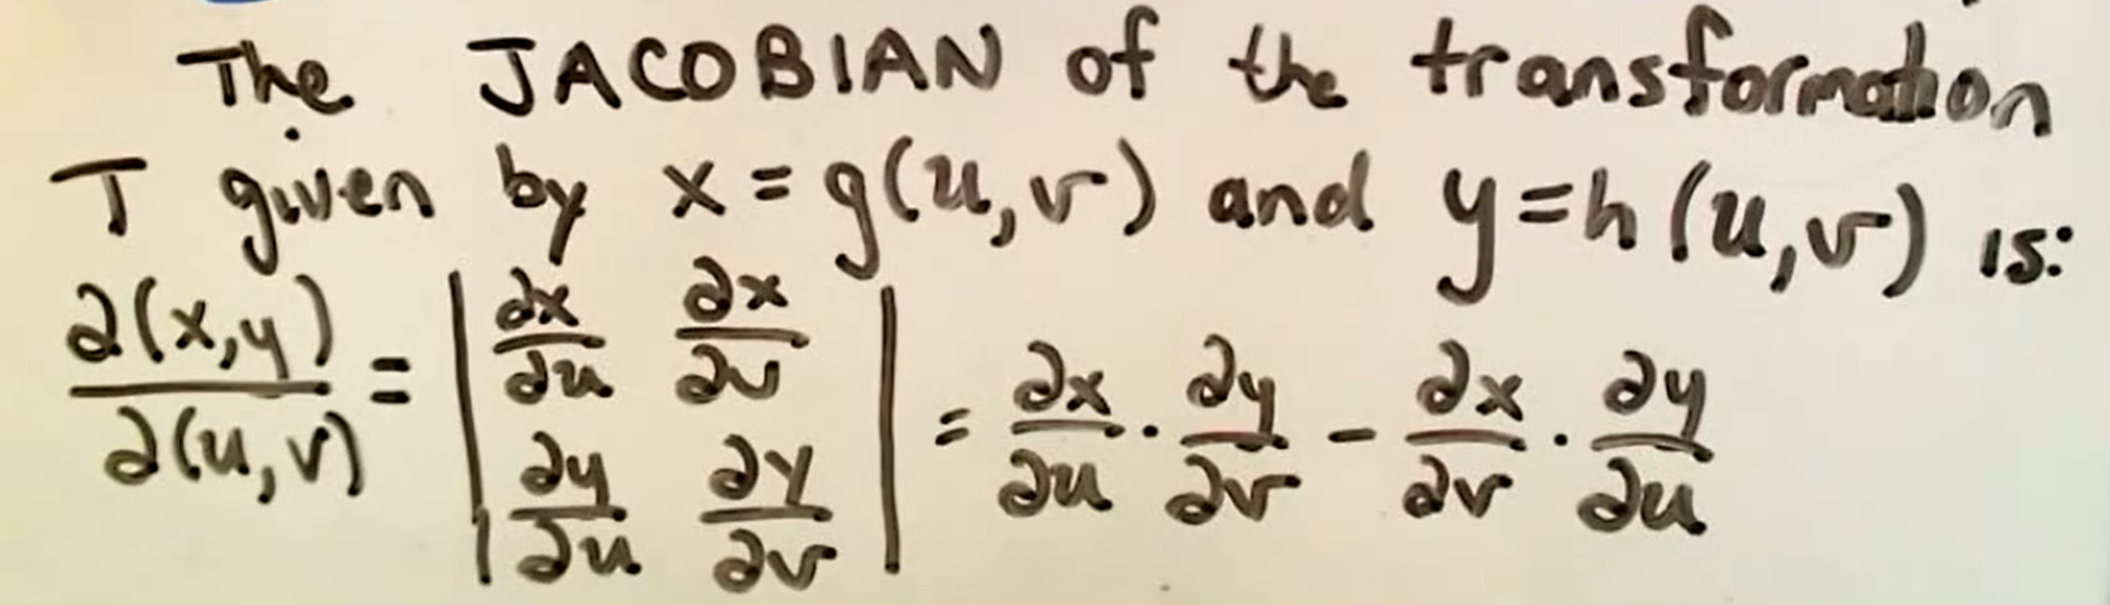 The JACOBIAN of the transformation
T given by x = g(u,v) and y = h(u,v) is:
∂(x,y)/∂(u,v) = | ∂x/∂u ∂x/∂v ; ∂y/∂u ∂y/∂v | = ∂x/∂u · ∂y/∂v - ∂x/∂v · ∂y/∂u